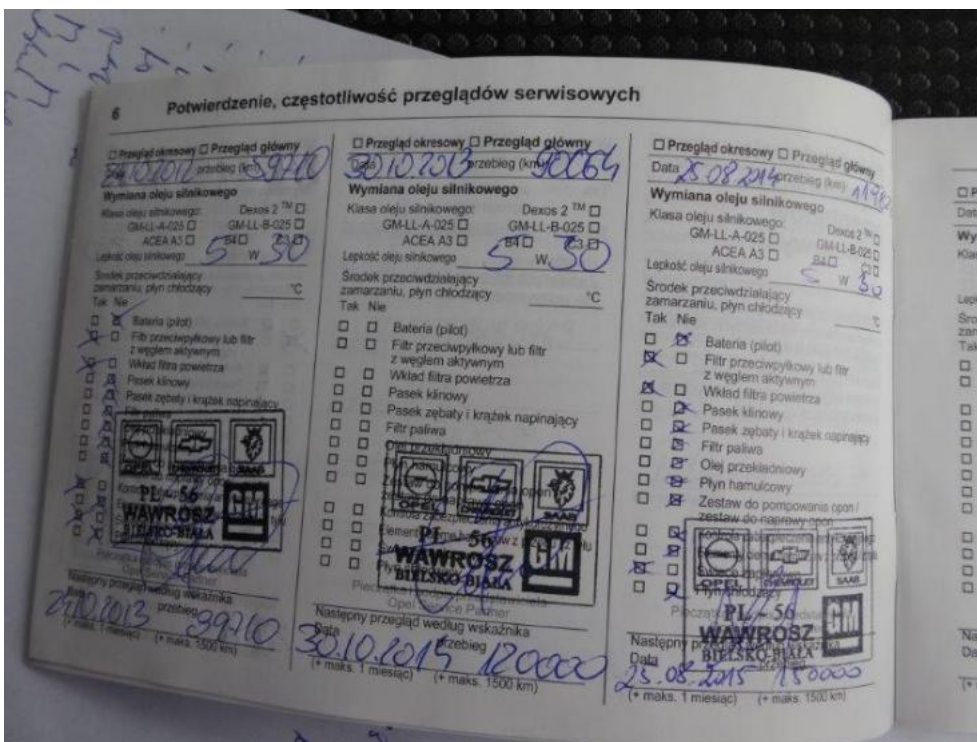 6 Potwierdzenie, częstotliwość przeglądów serwisowych
☐ Przegląd okresowy ☐ Przegląd główny
Data przebieg (km) 59710
Wymiana oleju silnikowego
Klasa oleju silnikowego: Dexos 2 ™ ☐
GM-LL-A-025 ☐ GM-LL-B-025 ☐
ACEA A3 ☐ B4 ☐ C3 ☐
Lepkość oleju silnikowego 5 W 30
Środek przeciwdziałający
zamarzaniu, płyn chłodzący °C
Tak Nie
Bateria (pilot)
Filtr przeciwpyłkowy lub filtr
z węglem aktywnym
Wkład filtra powietrza
Pasek klinowy
Pasek zębaty i krążek napinający
Filtr paliwa
OPEL CHEVROLET SAAB
PL 56 GM
WAWROSZ
BIELSKO-BIAŁA
Następny przegląd według wskaźnika
Data przebieg
29.10.2013 99710
(+ maks. 1 miesiąc) (+ maks. 1500 km)
☐ Przegląd okresowy ☐ Przegląd główny
Data 30.10.2013 przebieg (km) 90064
Wymiana oleju silnikowego
Klasa oleju silnikowego: Dexos 2 ™ ☐
GM-LL-A-025 ☐ GM-LL-B-025 ☐
ACEA A3 ☐ B4 ☐ C3 ☐
Lepkość oleju silnikowego 5 W 30
Środek przeciwdziałający
zamarzaniu, płyn chłodzący °C
Tak Nie
Bateria (pilot)
Filtr przeciwpyłkowy lub filtr
z węglem aktywnym
Wkład filtra powietrza
Pasek klinowy
Pasek zębaty i krążek napinający
Filtr paliwa
Olej przekładniowy
Płyn hamulcowy
OPEL CHEVROLET SAAB
PL 56 GM
WAWROSZ
BIELSKO-BIAŁA
Opel Service Partner
Następny przegląd według wskaźnika
Data przebieg
30.10.2014 120000
(+ maks. 1 miesiąc) (+ maks. 1500 km)
☐ Przegląd okresowy ☐ Przegląd główny
Data 25.08.2014 przebieg (km)
Wymiana oleju silnikowego
Klasa oleju silnikowego: Dexos 2 ™ ☐
GM-LL-A-025 ☐ GM-LL-B-025 ☐
ACEA A3 ☐ B4 ☐ C3 ☐
Lepkość oleju silnikowego 5 W 30
Środek przeciwdziałający
zamarzaniu, płyn chłodzący °C
Tak Nie
Bateria (pilot)
Filtr przeciwpyłkowy lub filtr
z węglem aktywnym
Wkład filtra powietrza
Pasek klinowy
Pasek zębaty i krążek napinający
Filtr paliwa
Olej przekładniowy
Płyn hamulcowy
Zestaw do pompowania opon /
zestaw do naprawy opon
Płyn chłodzący
OPEL CHEVROLET SAAB
PL 56 GM
WAWROSZ
BIELSKO-BIAŁA
Następny przegląd według wskaźnika
Data przebieg
25.08.2015 150000
(+ maks. 1 miesiąc) (+ maks. 1500 km)